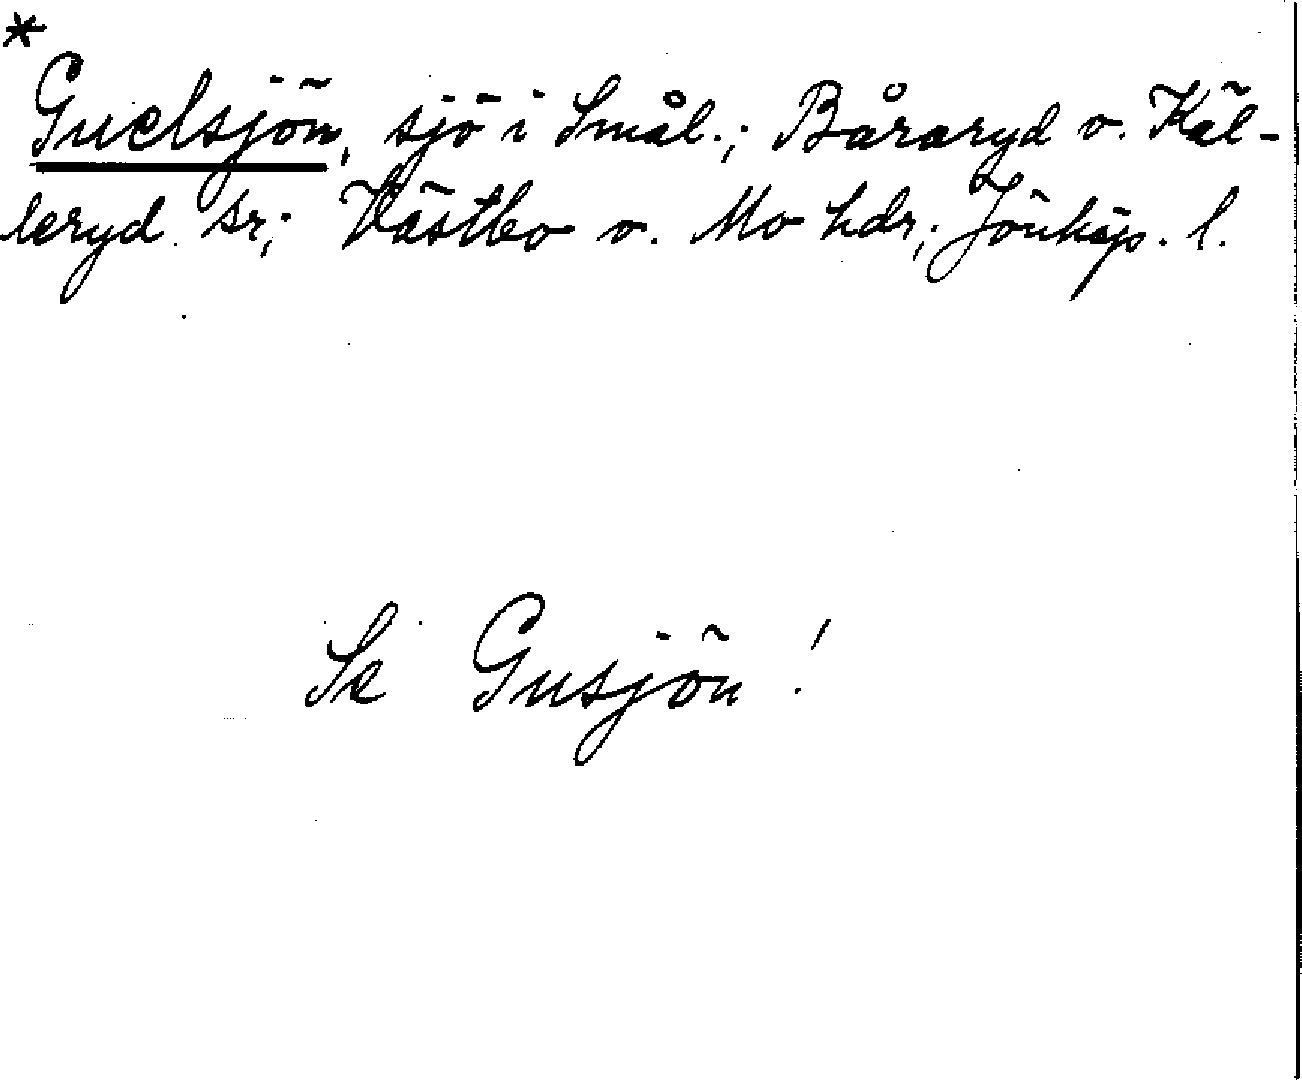 *
Gudsjön, sjö i Smål.; Båraryd o. Käl-
leryd sr; Västbo o. Mo hdr; Jönköp. l.
Se Gusjön!